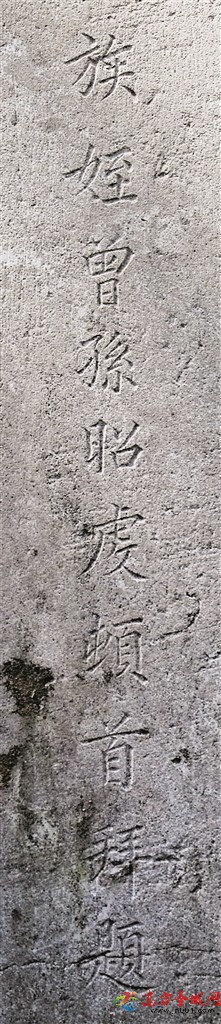 族姪曾孫昭虔頓首拜題